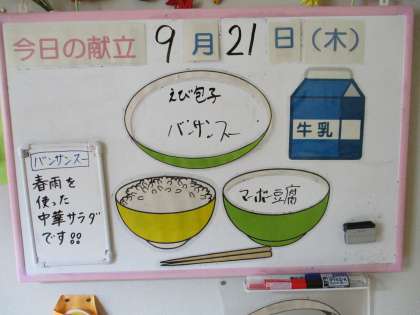 今日の献立 9月21日(木)
えび包子
バンサンスー
牛乳
バンサンスー
春雨を
使った
中華サラダ
です!!
マーボー豆腐